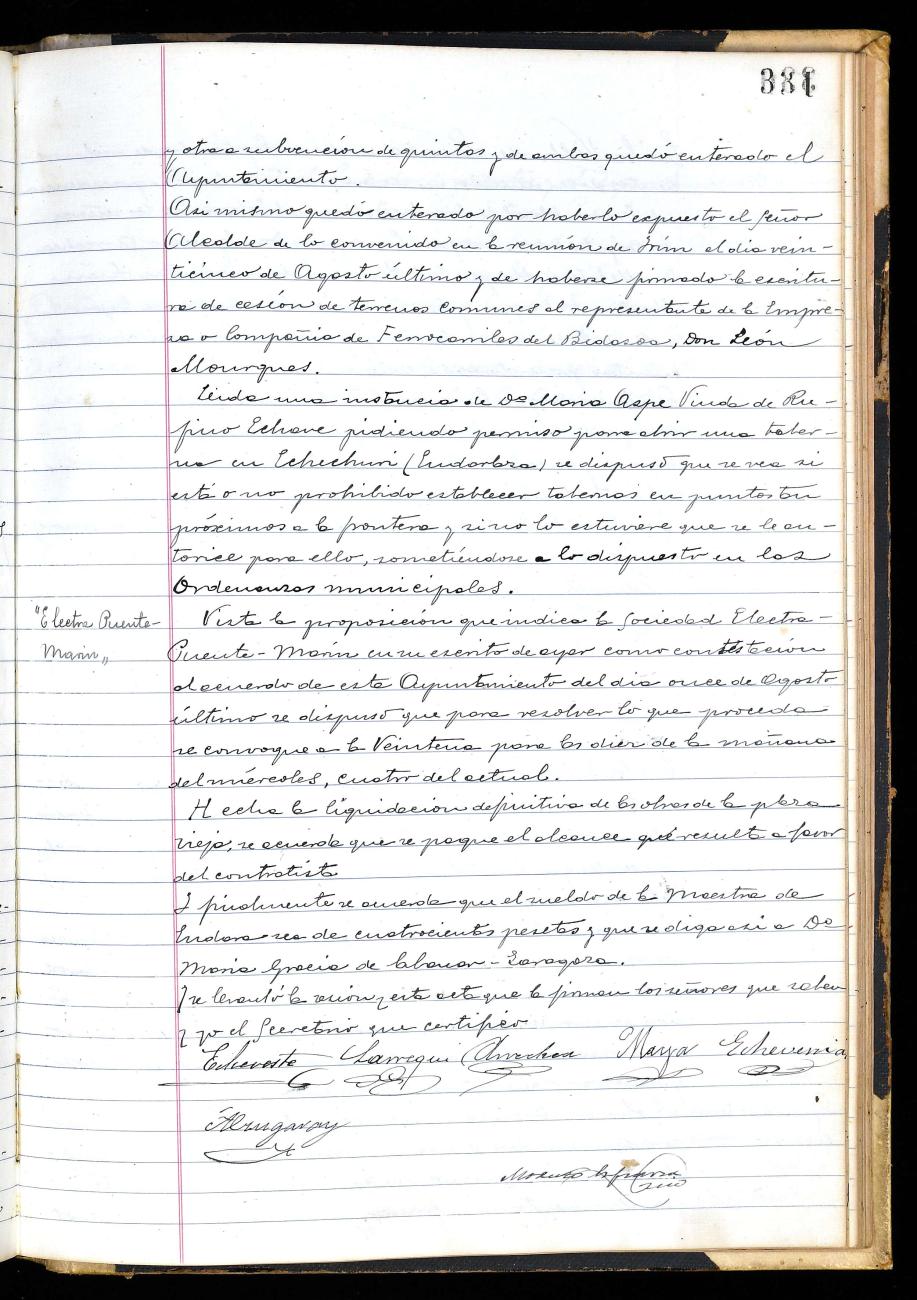 331
y otra a subvención de quintas y de ambas quedó enterado el
Ayuntamiento.
Asi mismo quedó enterado por haberlo expuesto el Señor
Alcalde de lo convenido en la reunión de Irún el dia vein-
ticinco de Agosto último y de haberse firmado la escritu-
ra de cesión de terrenos comunes al representante de la Empre-
sa o Compañia de Ferrocarriles del Bidasoa, Don León
Mourgues.
Leida una instancia de Dª Maria Aspe Viuda de Ru-
fino Echave pidiendo permiso para abrir una taber-
na en Echechuri (Endarlaza) se dispuso que se vea si
está o no prohibido establecer tabernas en puntos tan
próximos a la frontera y si no lo estuviere que se le au-
torice para ello, sometiéndose a lo dispuesto en las
Ordenanzas municipales.
"Electra Puente-
Marin„
Vista la proposición que indica la Sociedad Electra-
Puente-Marin en su escrito de ayer como contestación
al acuerdo de este Ayuntamiento del dia once de Agosto
último se dispuso que para resolver lo que proceda
se convoque a la Veintena para las diez de la mañana
del miércoles, cuatro del actual.
Hecha la liquidación definitiva de las obras de la plaza
vieja, se acuerda que se pague el alcance que resulta a favor
del contratista
Y finalmente se acuerda que el sueldo de la Maestra de
Endara sea de cuatrocientas pesetas y que se diga asi a Dª
Maria Gracia de - Zaragoza.
Y se levantó la sesión y esta acta que la firman los señores que saben
y yo el Secretario que certifico
Echeveste Larregui Arrechea Maya Echeverria